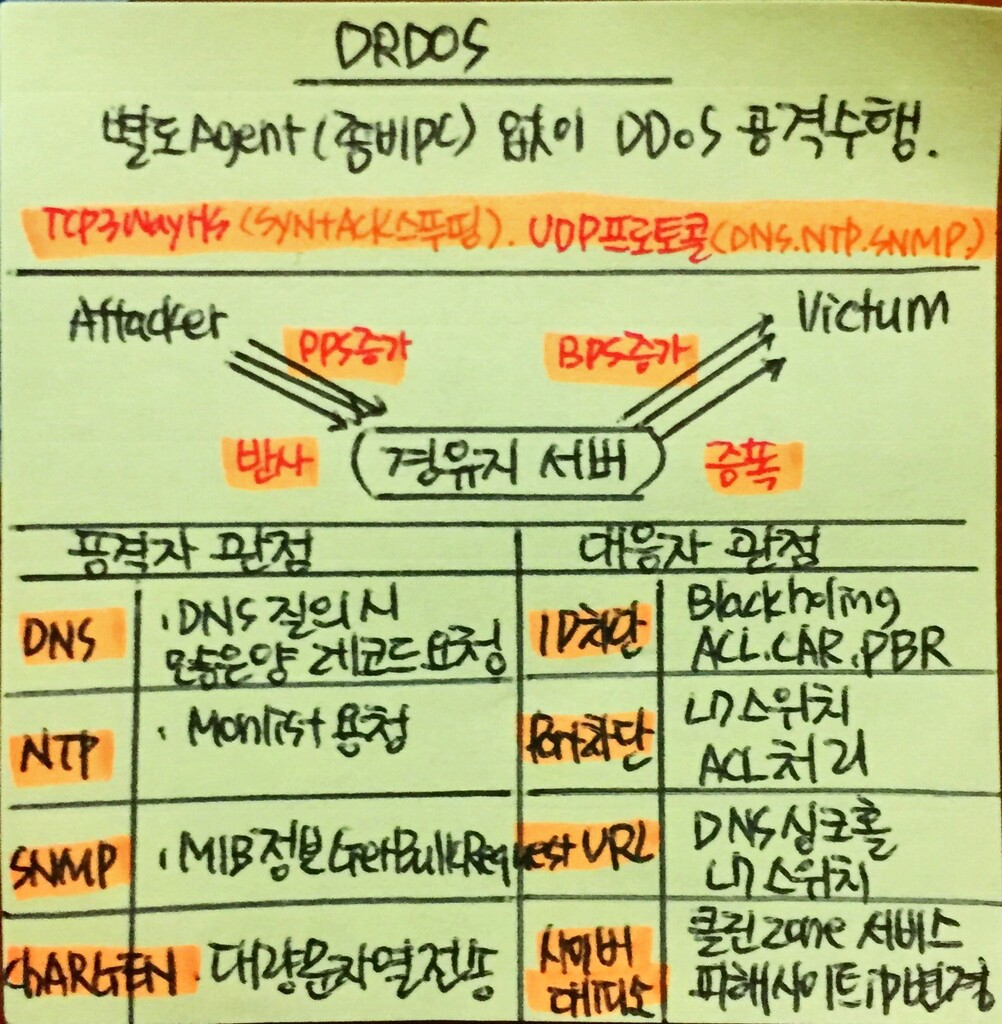 DRDOS
별도Agent(좀비PC) 없이 DDoS 공격수행.
TCP3WayHS(SYN+ACK스푸핑). UDP프로토콜(DNS.NTP.SNMP.)
Attacker
Victum
PPS증가
BPS증가
반사
경유지 서버
증폭
공격자 관점
대응자 관점
DNS
DNS 질의시
많은양 레코드요청
IP차단
Blackholing
ACL.CAR.PBR
NTP
Monlist 요청
Port차단
L7스위치
ACL처리
SNMP
MIB정보GetBulkRequest
URL
DNS싱크홀
L7스위치
ChARGEN
대량문자열전송
사이버
대피소
클린zone 서비스
피해사이트ip변경